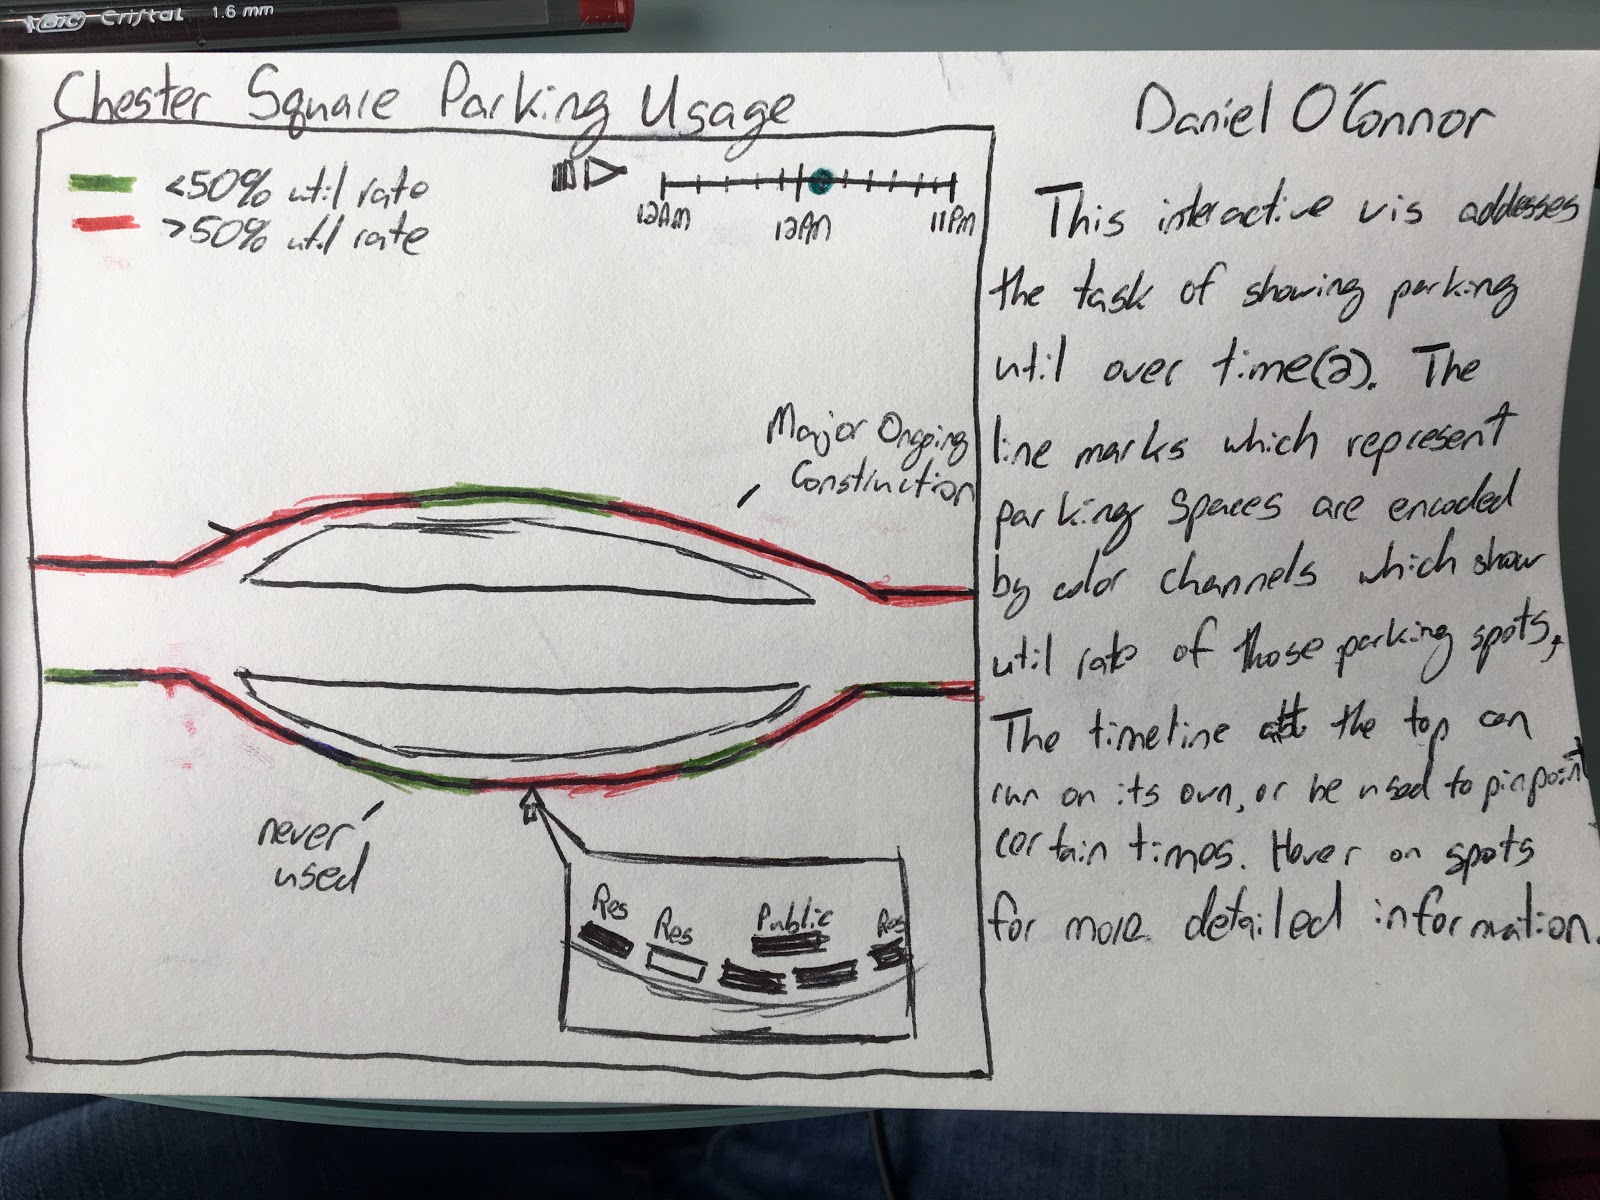 BIC Cristal 1.6 mm
Chester Square Parking Usage
<50% util rate
>50% util rate
12AM
12PM
11PM
Major Ongoing
Construction
never
used
Res
Res
Public
Res
Daniel O'Connor
This interactive vis addesses
the task of showing parking
util over time(2). The
line marks which represent
parking spaces are encoded
by color channels which show
util rate of those parking spots,
The timeline at the top can
run on its own, or be used to pinpoint
certain times. Hover on spots
for more detailed information.